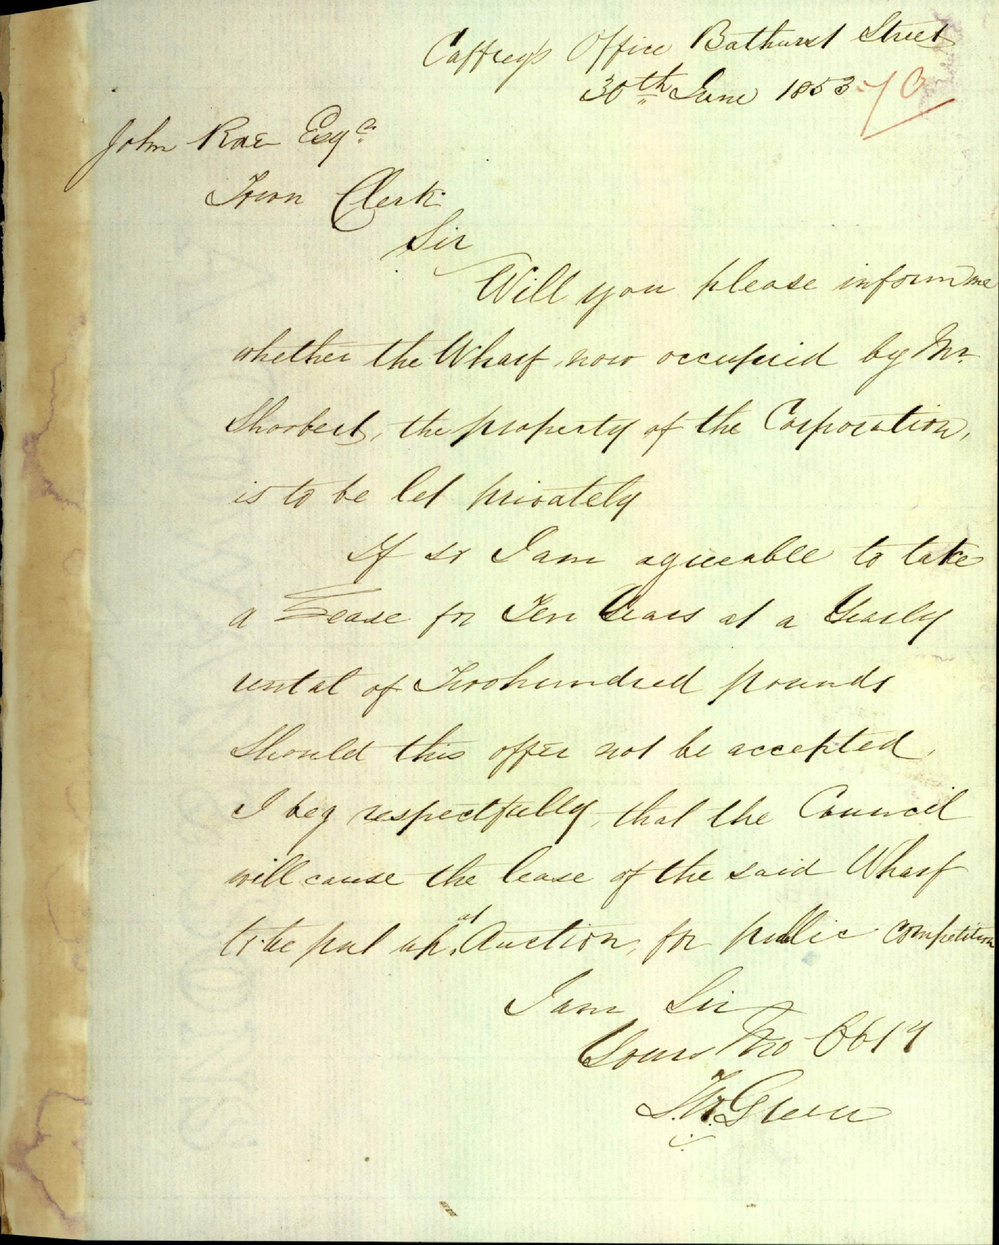 Caffrey's Office Bathurst Street
30th June 1853
John Rae Esqre
Town Clerk
Sir
Will you please inform me
whether the Wharf, now occupied by Mr
the property of the Corporation,
is to be let privately
If so I am agreeable to take
a Lease for Ten Years at a Yearly
rental of Two hundred pounds
Should this offer not be accepted,
I beg respectfully, that the Council
will cause the lease of the said Wharf
to be put up at Auction, for public competition
I am Sir
Yours Mo Obt
Green